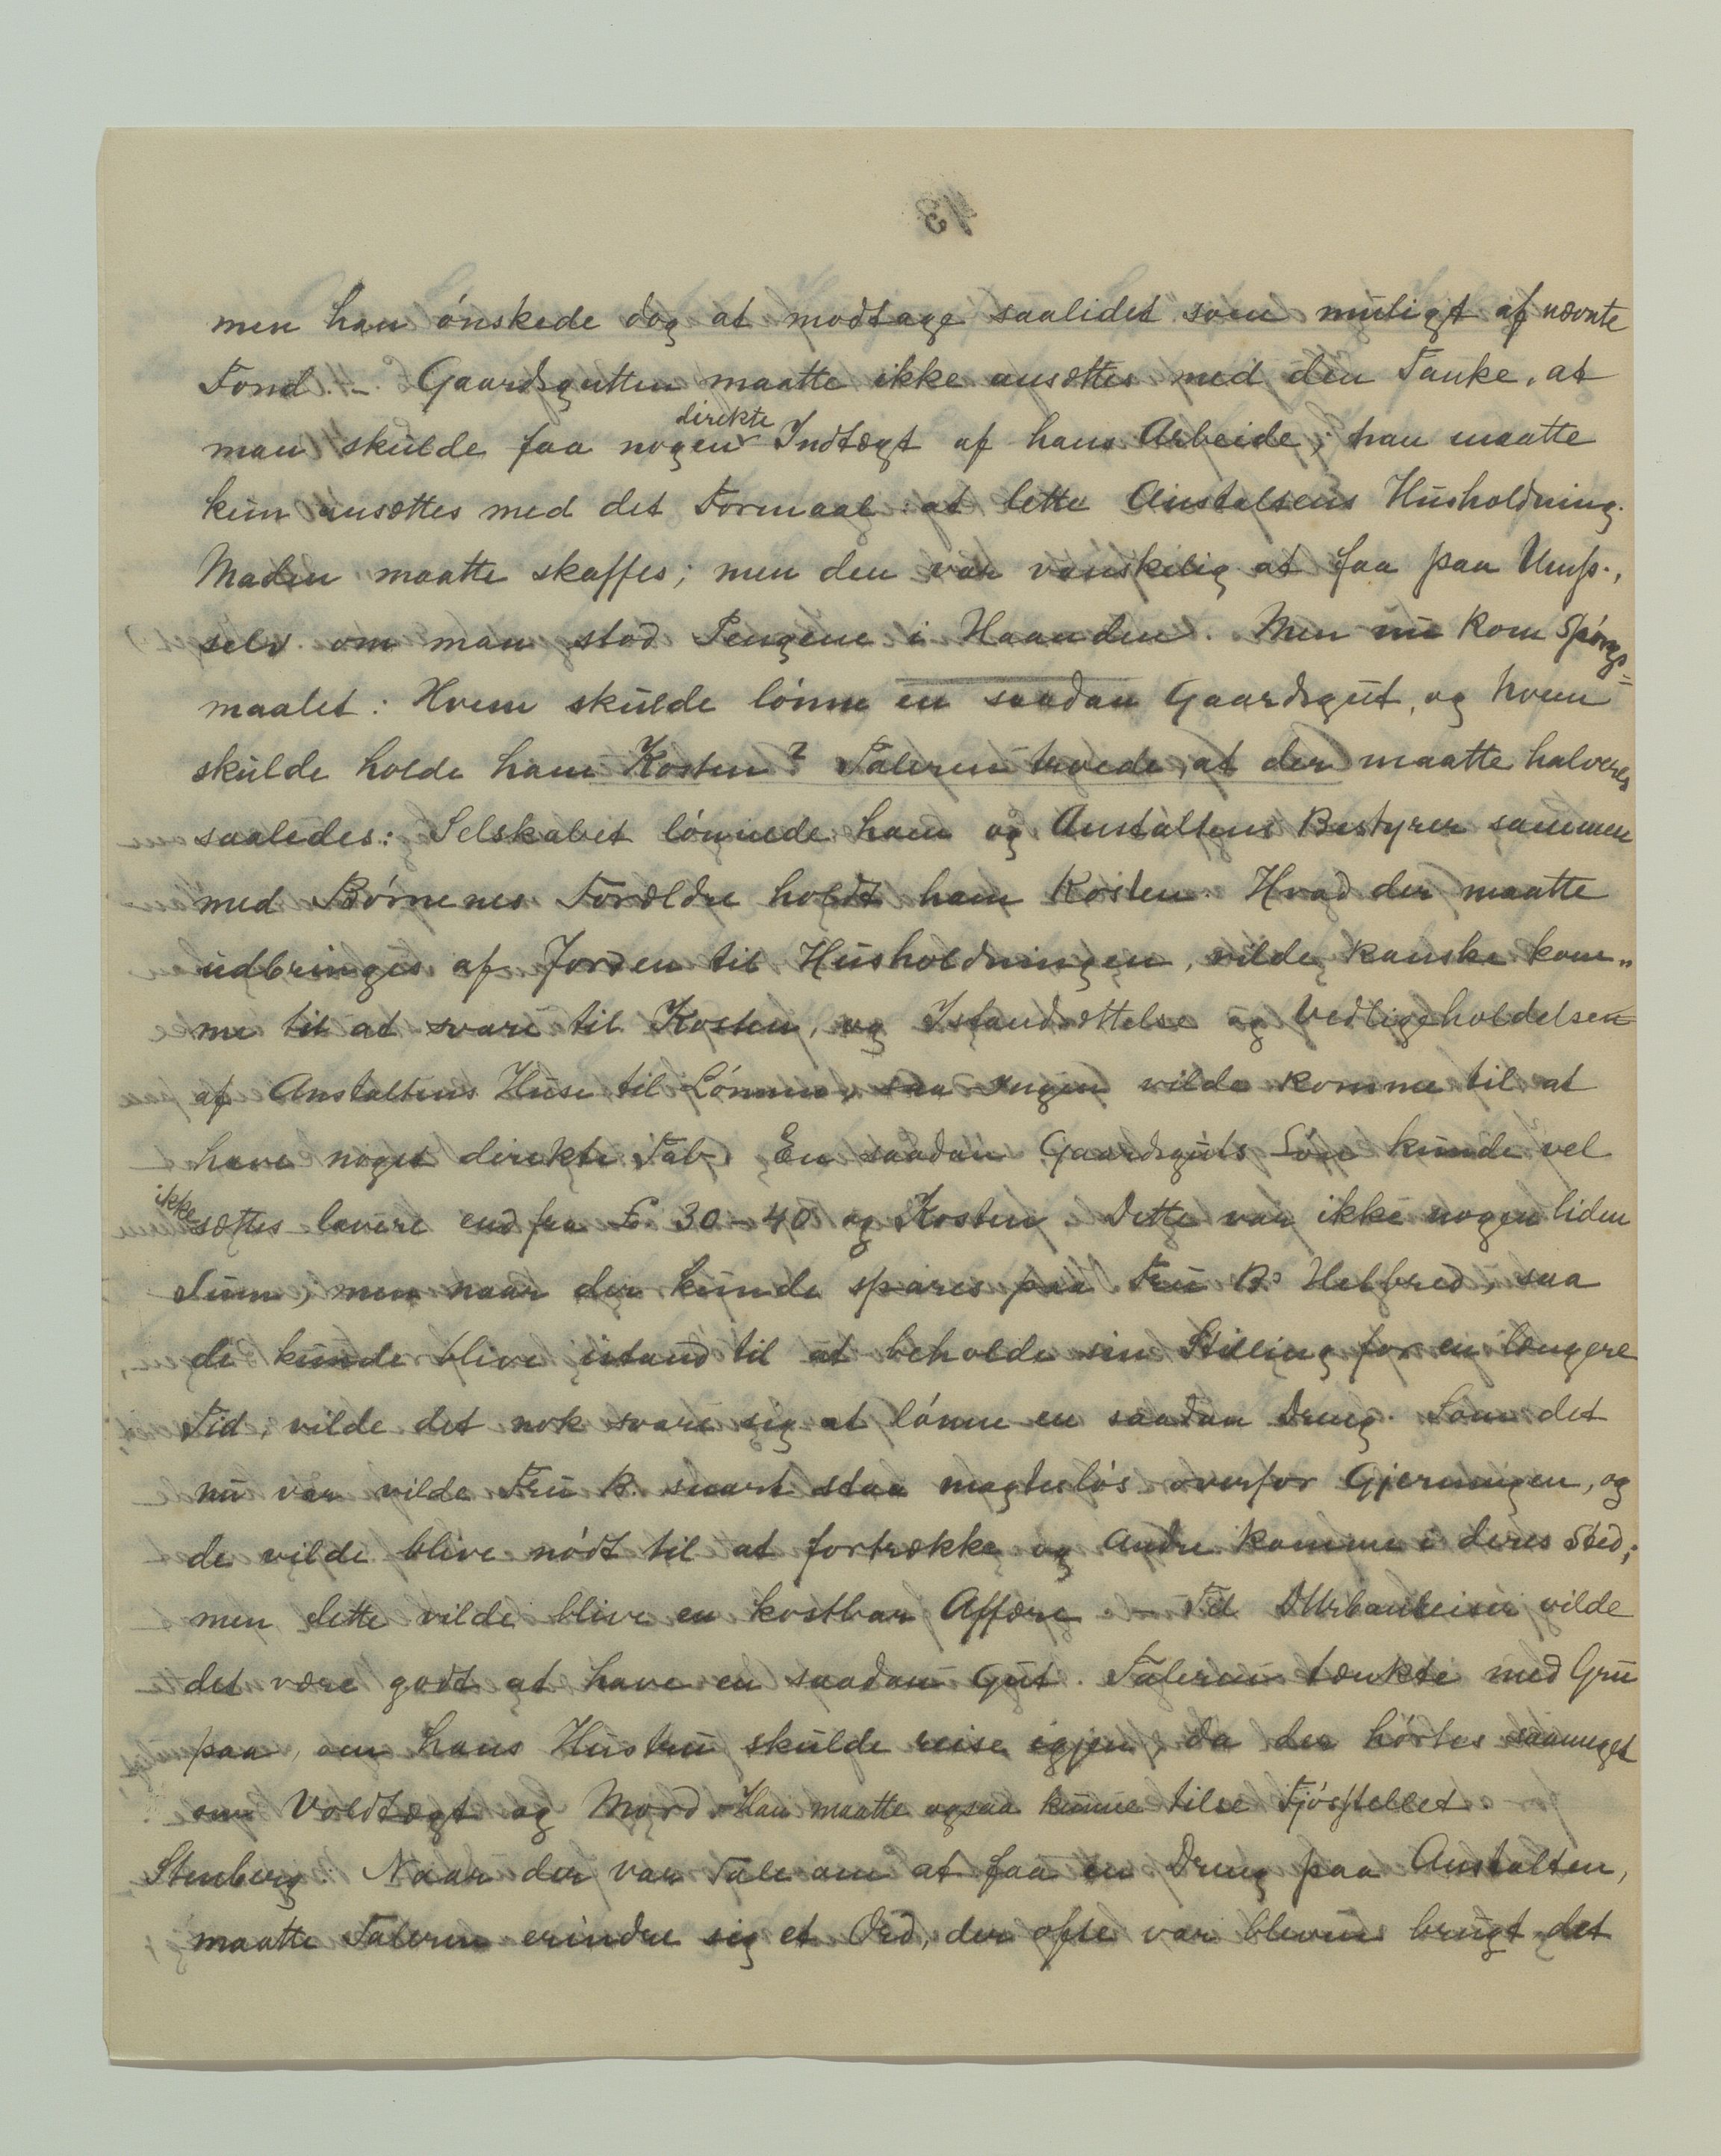 men han ønskede dog at modtage saalidet som muligt af nævnte
Fond. – Gaardsgutten maatte ikke ansættes med den Tanke, at
man skulde faa nogen direkte Indtægt af hans Arbeide; han maatte
kun ansættes med det Formaal: at lette Anstaltens Husholdning.
Maden maatte skaffes; men den var vanskelig at faa paa Ump.,
selv om man stod Pengene i Haanden. Men nu kom Spørgs=
maalet: Hvem skulde lønne en saadan Gaardsgut, og hvem
skulde holde ham Kosten? Taleren troede, at der maatte halveres
saaledes: Selskabet lønnede ham og Anstaltens Bestyrer sammen
med Børnenes Forældre holdt ham Kosten. Hvad der maatte
udbringes af Jorden til Husholdningen, vilde kanske kom„
me til at svare til Kosten, og Istandsættelse og Vedligeholdelsen
af Anstaltens Huse til Lønnen, saa ingen vilde komme til at
have noget direkte Tab. En saadan Gaardsguts Løn kunde vel
ikke sættes lavere end fra £ 30–40 og Kosten. Dette var ikke nogen liden
Sum; men naar der kunde spares paa Fru B's Helbred, saa
de kunde blive istand til at beholde sin Stilling for en længere
Tid, vilde det nok svare sig at lønne en saadan Dreng. Som det
nu var vilde Fru B. snart staa magtesløs overfor Gjerningen, og
de vilde blive nødt til at fortrække og Andre komme i deres Sted;
men dette vilde blive en kostbar Affære. – Til DUrbanreiser vilde
det være godt at have en saadan Gut. Taleren tænkte med Gru
paa, om hans Hustru skulde reise igjen, da der hørtes saameget
om Voldtægt og Mord. Han maatte ogsaa kunne tilse Fjøsstellet.
Stenberg: Naar der var Tale om at faa en Dreng paa Anstalten,
maatte Taleren erindre sig et Ord, der ofte var bleven brugt det